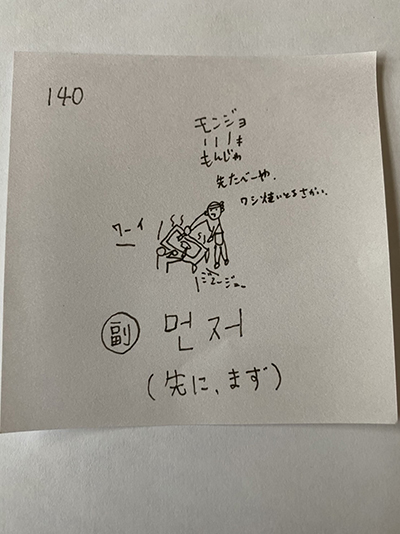 140
モンジョ
もんじゃ
先たべーや.
ワシ焼いとるさかい.
ワーイ
副 먼저
(先に、まず)